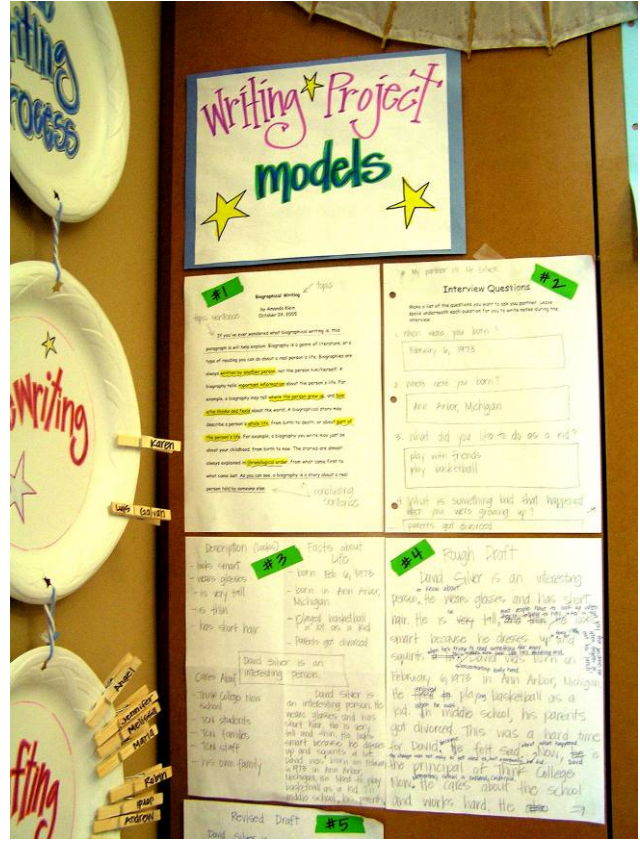 Writing
Process
Writing Project
models
#1
Biographical Writing
by Amanda Klein
October 24, 2005
topic
topic sentence
If you've ever wondered what biographical writing is, this
paragraph is will help explain. Biography is a genre of literature, or a
type of reading you can do about a real person's life. Biographies are
always written by another person, not the person him/herself. A
biography tells important information about the person's life. For
example, a biography may tell where the person grew up, and how
he/she thinks and feels about the world. A biographical story may
describe a person's whole life, from birth to death, or about part
of the person's life. For example, a biography you write may just be
about your childhood, from birth to now. The stories are almost
always explained in chronological order, from what came first to
what came last. As you can see, a biography is a story about a real
person told by someone else.
concluding
sentence
#2
My partner is Mr. Silver
Interview Questions
Make a list of the questions you want to ask you partner. Leave
space underneath each question for you to write notes during the
interview.
1. When were you born?
February 6, 1973
2. Where were you born?
Ann Arbor, Michigan
3. What did you like to do as a kid?
play with friends
play basketball
4. What is something bad that happened
when you were growing up?
parents got divorced
#3
Description (Looks)
- looks smart
- wears glasses
- is very tall
- is thin
- has short hair
Facts about
Life
- born Feb 6, 1973
- born in Ann Arbor,
Michigan
- played basketball
a lot as a kid
- Parents got divorced
David Silver is an
interesting person.
Cares About
- Think College Now
school
- TCN students
- TCN families
- TCN staff
- his own family
David Silver is
an interesting person. He
wears glasses and has
short hair. He is very
tall and thin. He looks
smart because he dresses
up and squints a lot.
David was born on February
6, 1973 in Ann Arbor,
Michigan. He liked to play
basketball as a kid. In
middle school, his parents
#4
Rough Draft
David Silver is an interesting
person. He wears glasses and has short
hair. He is very tall, and thin. He looks
smart because he dresses up and
squints David was born on
February 6, 1973 in Ann Arbor, Michigan.
He enjoyed playing basketball as a
kid. In middle school, his parents
got divorced. This was a hard time
for David. He felt sad. Now, David is
the principal of Think College
Now. He cares about the school
and works hard. He
#5
Revised Draft
David Silver is
Prewriting
Karen
Luis Galvan
Drafting
Angel
Jennifer
Melissa
Maria
Robin
Andrew